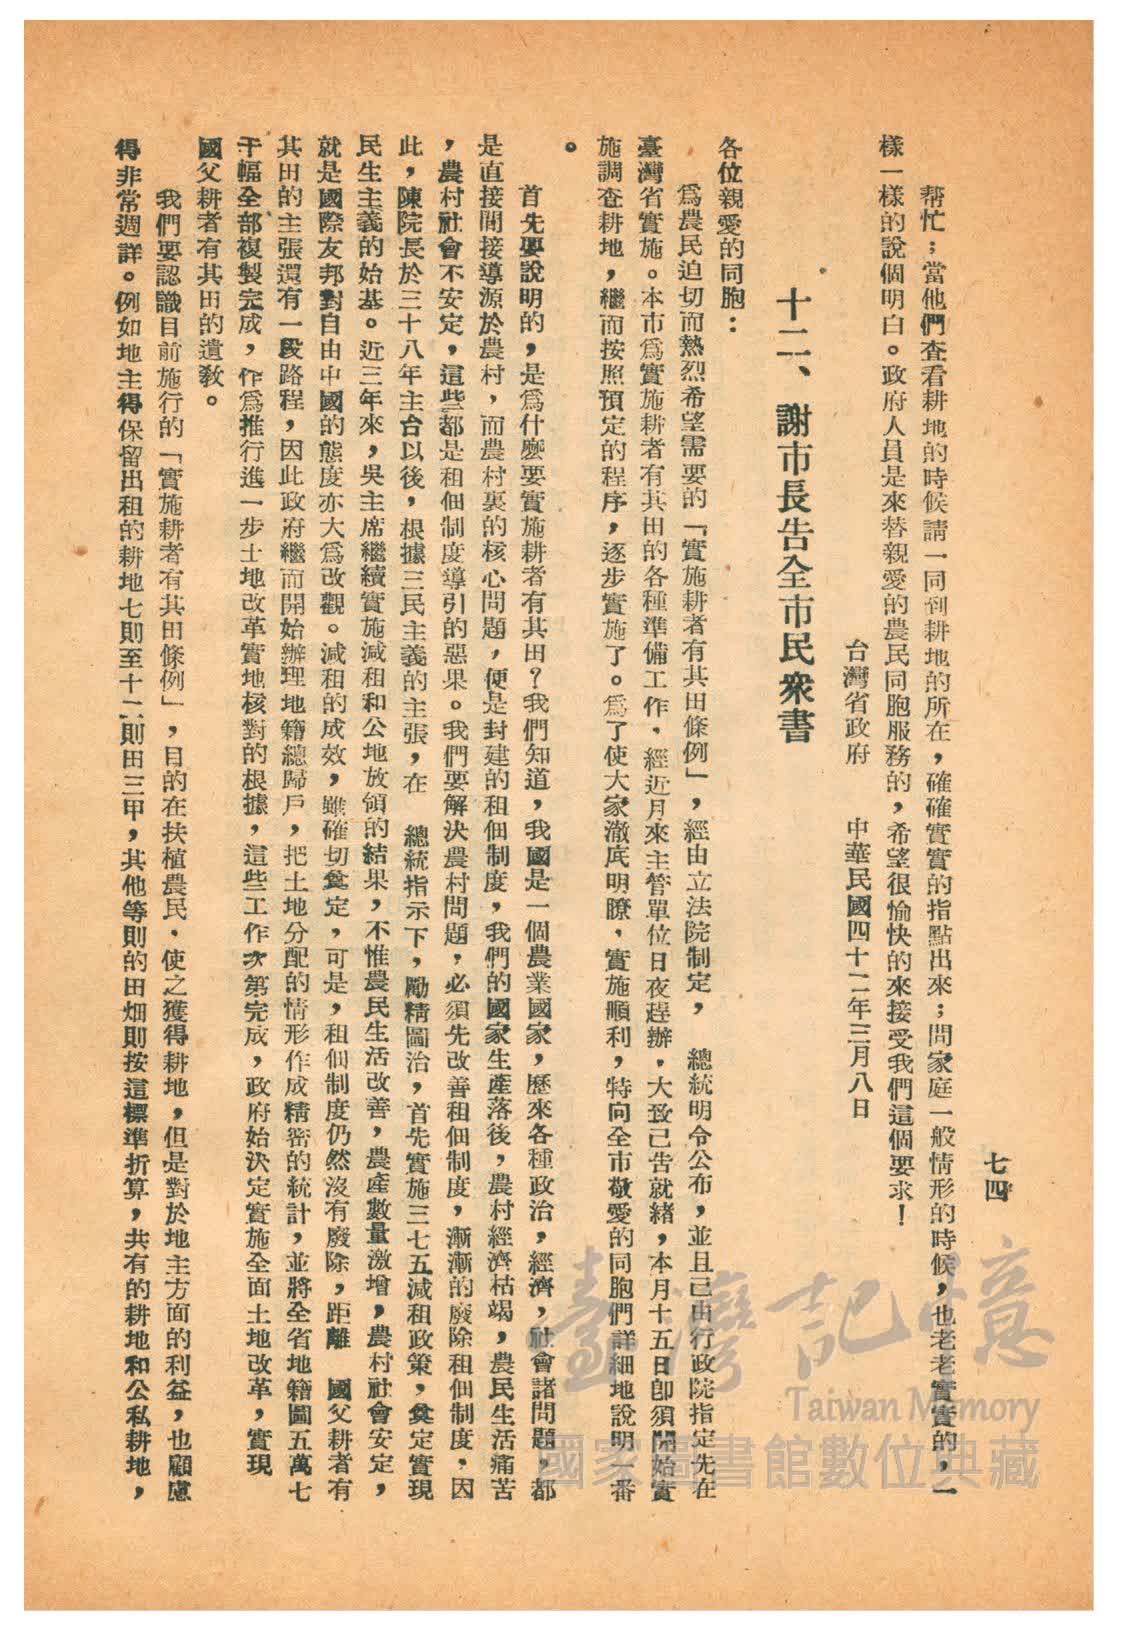 七四
帮忙；當他們查看耕地的時候請一同到耕地的所在，確確實實的指點出來；問家庭一般情形的時候，也老老實實的，一
樣一樣的說個明白。政府人員是來替親愛的農民同胞服務的，希望很愉快的來接受我們這個要求！
台灣省政府　中華民國四十二年三月八日
十二、謝市長告全市民衆書
各位親愛的同胞：
爲農民迫切而熱烈希望需要的「實施耕者有其田條例」，經由立法院制定，　總統明令公布，並且已由行政院指定先在
臺灣省實施。本市爲實施耕者有其田的各種準備工作，經近月來主管單位日夜趕辦，大致已告就緒，本月十五日卽須開始實
施調查耕地，繼而按照預定的程序，逐步實施了。爲了使大家澈底明瞭，實施順利，特向全市敬愛的同胞們詳細地說明一番
。
首先要說明的，是爲什麼要實施耕者有其田？我們知道，我國是一個農業國家，歷來各種政治，經濟，社會諸問題，都
是直接間接導源於農村，而農村裏的核心問題，便是封建的租佃制度，我們的國家生產落後，農村經濟枯竭，農民生活痛苦
，農村社會不安定，這些都是租佃制度導引的惡果。我們要解決農村問題，必須先改善租佃制度，漸漸的廢除租佃制度，因
此，陳院長於三十八年主台以後，根據三民主義的主張，在　總統指示下，勵精圖治，首先實施三七五減租政策，奠定實現
民生主義的始基。近三年來，吳主席繼續實施減租和公地放領的結果，不惟農民生活改善，農產數量激增，農村社會安定，
就是國際友邦對自由中國的態度亦大爲改觀。減租的成效，雖確切奠定，可是，租佃制度仍然沒有廢除，距離　國父耕者有
其田的主張還有一段路程，因此政府繼而開始辦理地籍總歸戶，把土地分配的情形作成精密的統計，並將全省地籍圖五萬七
千幅全部複製完成，作爲推行進一步土地改革實地核對的根據，這些工作次第完成，政府始決定實施全面土地改革，實現
國父耕者有其田的遺敎。
我們要認識目前施行的「實施耕者有其田條例」，目的在扶植農民，使之獲得耕地，但是對於地主方面的利益，也顧慮
得非常週詳。例如地主得保留出租的耕地七則至十二則田三甲，其他等則的田畑則按這標準折算，共有的耕地和公私耕地，
臺灣記憶
Taiwan Memory
國家圖書館數位典藏